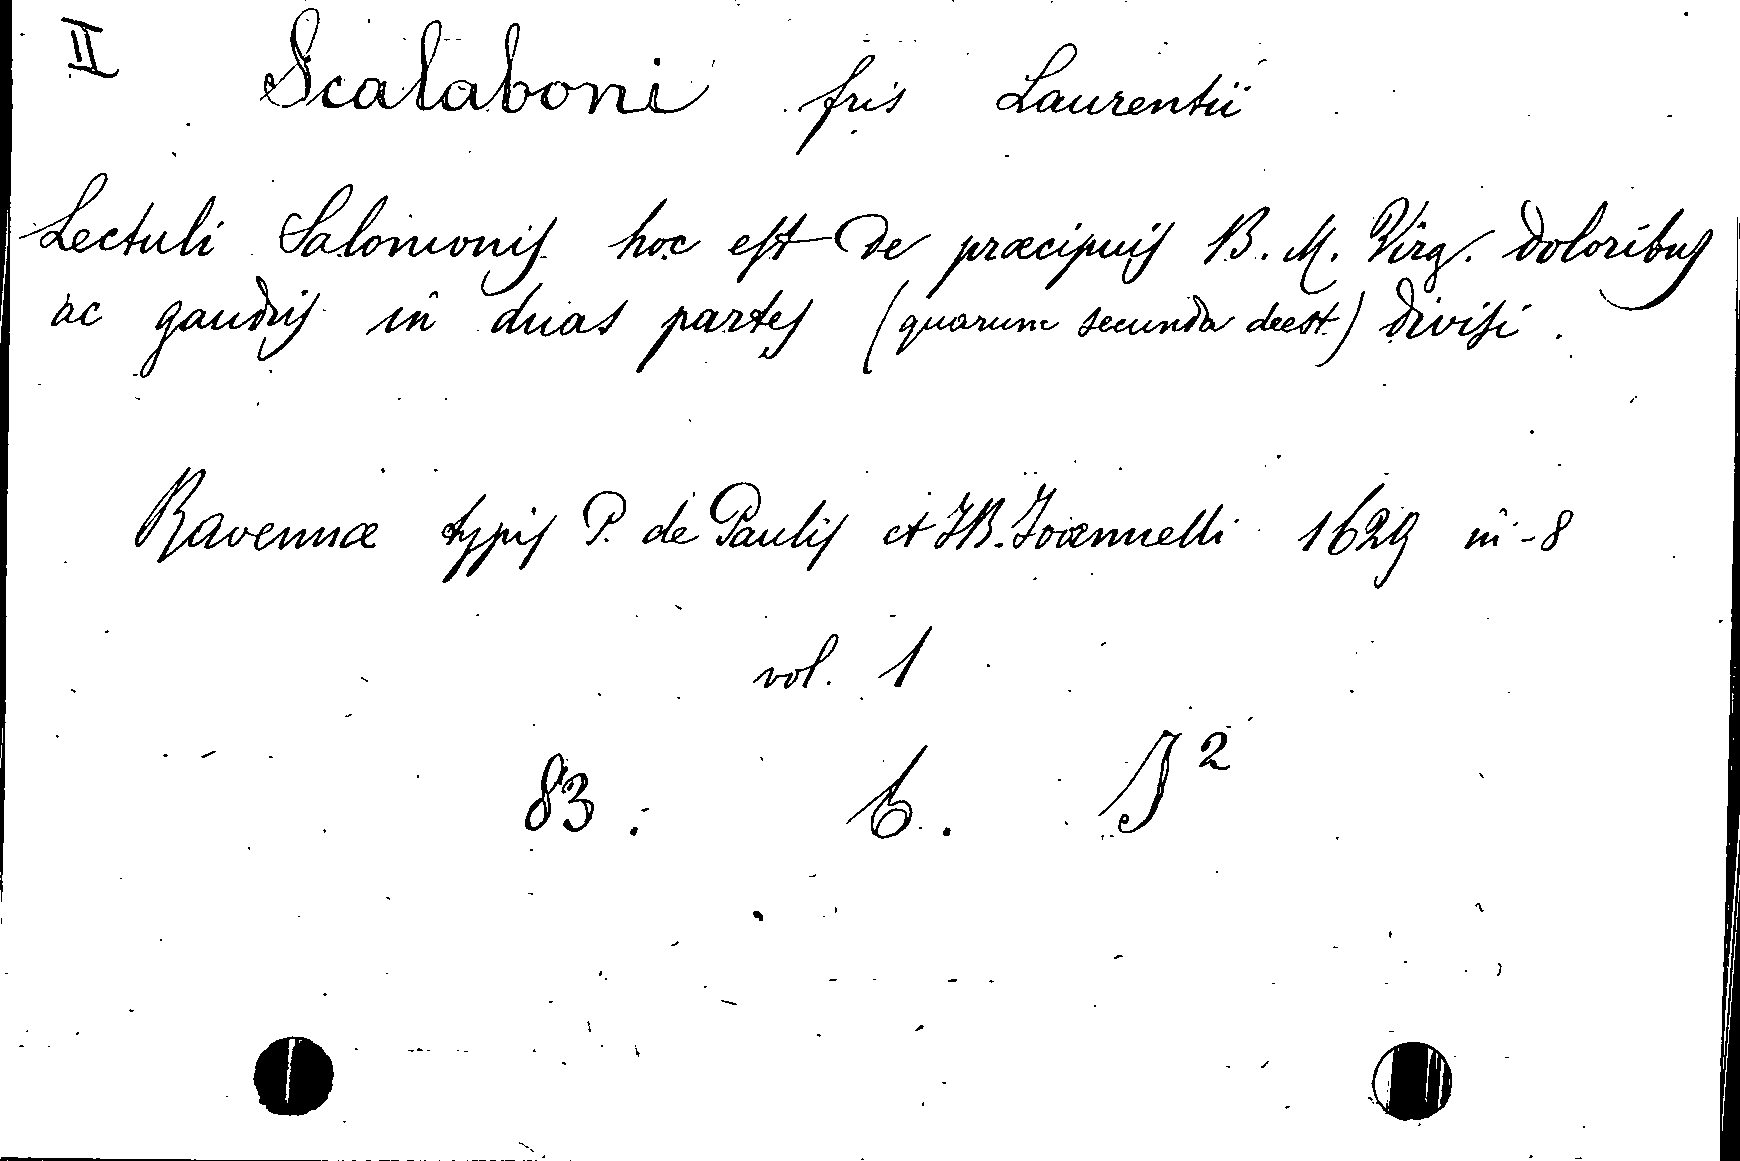 II Scalaboni fris Laurentii
Lectuli Salomonis hoc est de præcipuis B. M. Virg. doloribus
ac gaudiis in duas partes (quarum secunda deest) divisi.
Ravennæ typis P. de Paulis et JB. Joannelli 1629 in-8
vol. 1
83. b. J²